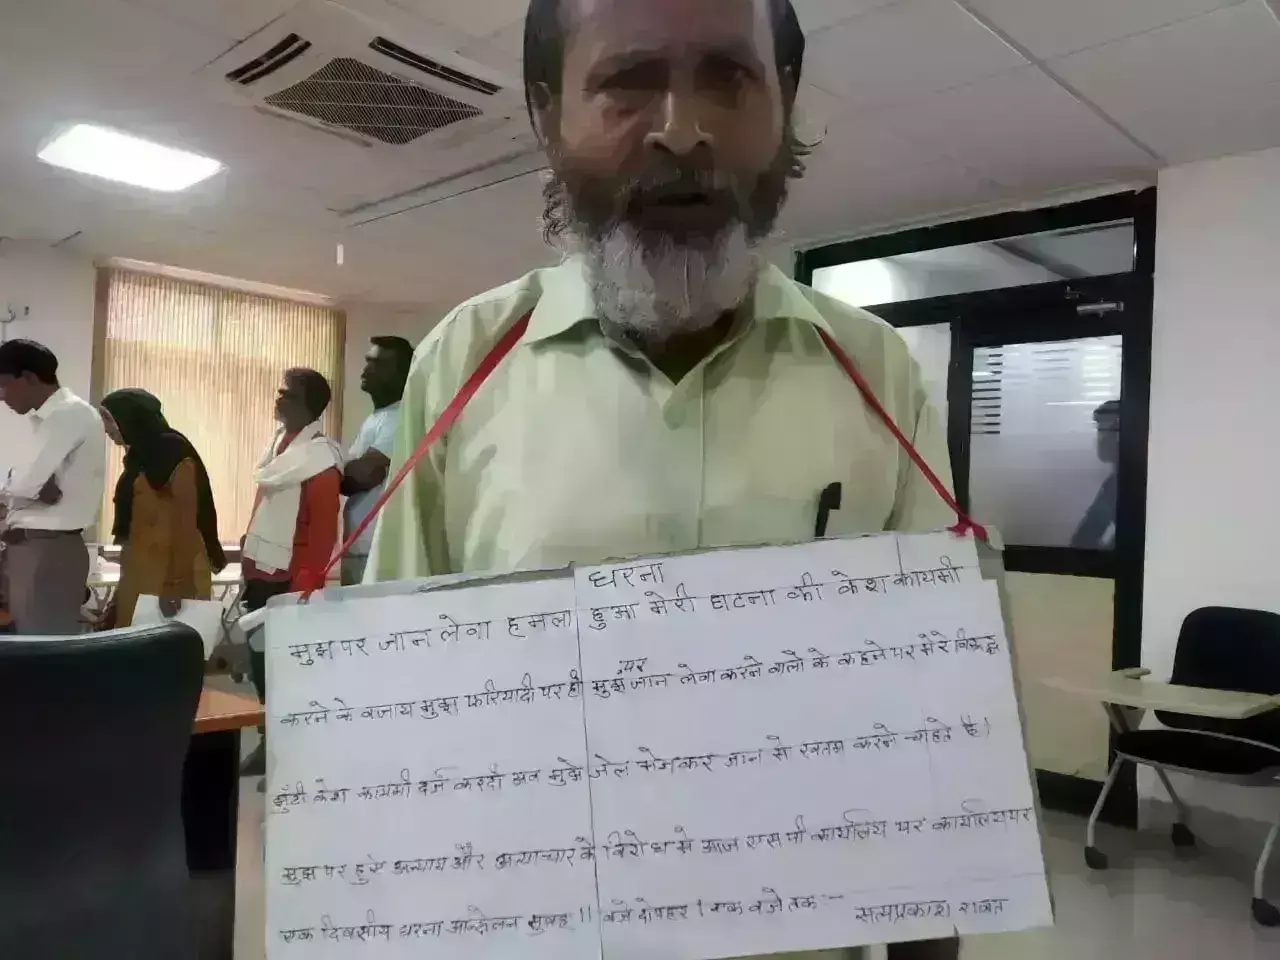 धरना
मुझ पर जान लेवा हमला हुआ मेरी घटना की केश कायमी
करने के वजाय मुझ फरियादी पर ही मुझ पर जान लेवा करने वालो के कहने पर मेरे विरूद्ध
झुठी केश कायमी दर्ज करदी अब मुझे जेल भेजकर जान से खतम करने चाहते है।
मुझ पर हुऐ अन्याय और अत्याचार के विरोध मे आज एस पी कार्यालय पर कार्यालय पर
एक दिवसीय धरना आन्दोलन सुबह 11 बजे दोपहर 1 एक बजे तक :-
सत्यप्रकाश रावत